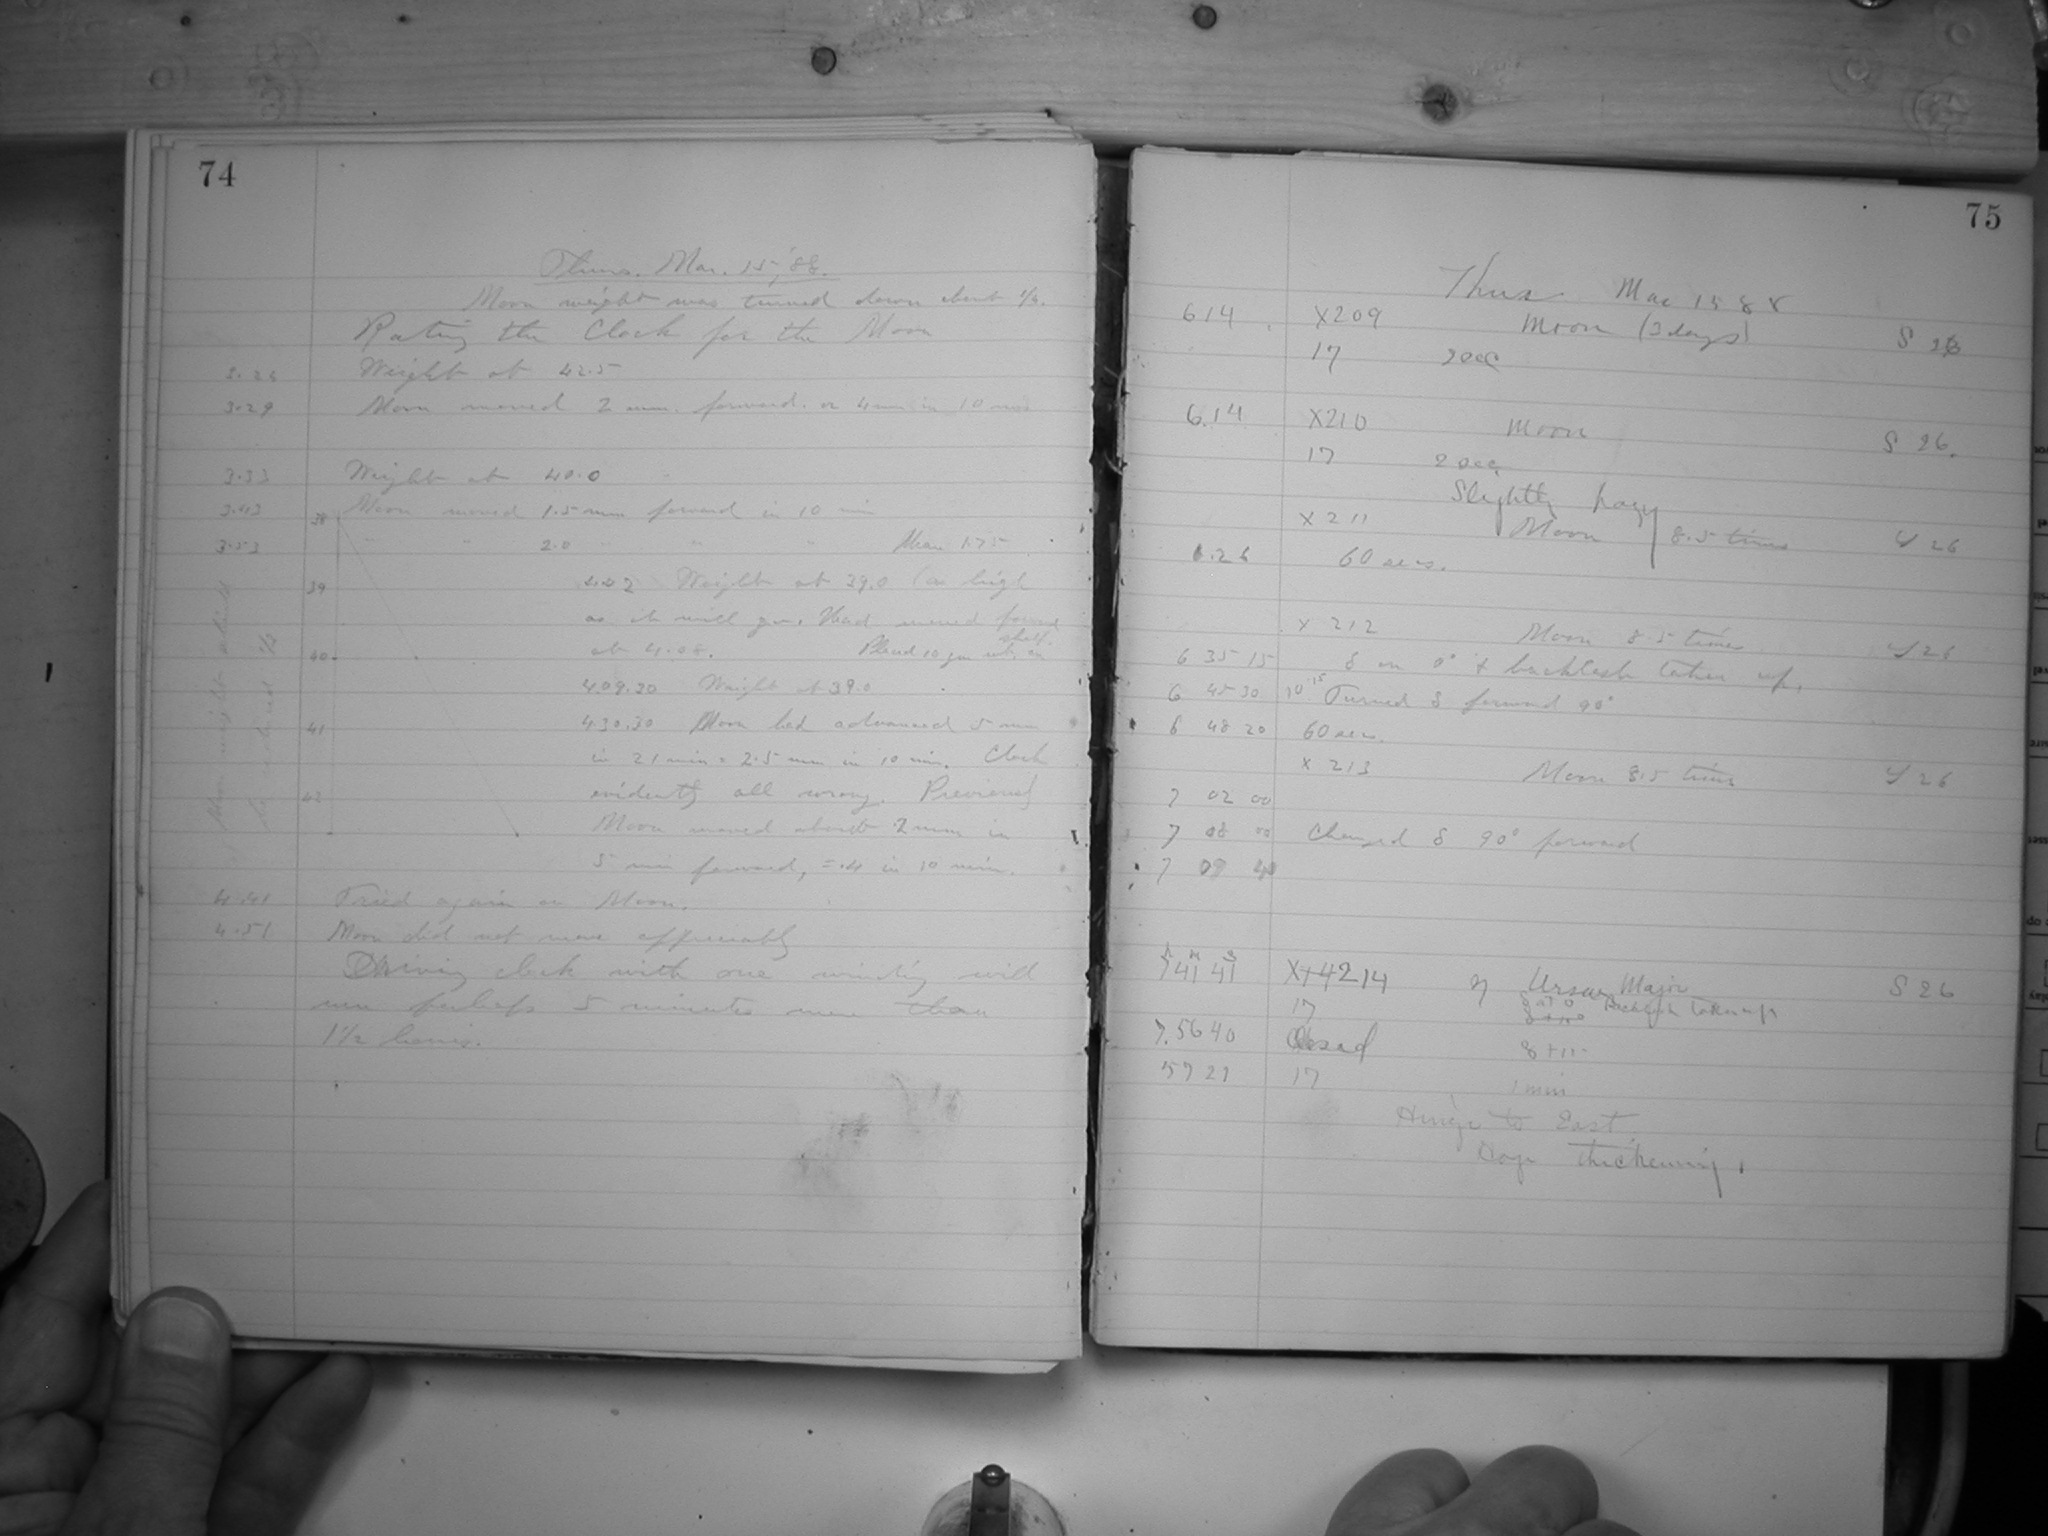 74
Thurs. Mar. 15, '88.
Moon weight was turned down about 1/2.
Rating the Clock for the Moon
3.26 Weight at 42.5
3.29 Moon moved 2 mm. forward. or 4 mm in 10 min
3.33 Weight at 40.0
3.43 Moon moved 1.5 mm forward in 10 min
3.53 " " 2.0 " " " Mean 1.75
38
39
40
41
42
Moon weight
4.02 Weight at 39.0 (as high
as it will go. Had moved forward
at 4.08. 10 gm shelf.
4.09.30 Weight at 39.0
4.30.30 Moon had advanced 5 mm
in 21 min = 2.5 mm in 10 min. Clock
evidently all wrong. Previously
Moon moved about 2 mm in
5 min forward, = .4 in 10 min.
4.41 Tried again on Moon.
4.51 Moon did not move appreciably
Driving clock with one winding will
run perhaps 5 minutes more than
1 1/2 hours.
75
Thurs Mar 15 88
6 14 X209 Moon (3 days) S 26
17 2 sec
6.14 X210 Moon S 26.
17 2 sec,
Slightly hazy
X 211 Moon 8.5 times S 26
6.26 60 secs.
X 212 Moon 8.5 times S 26
6 35 15 δ on 0° & backlash taken up.
6 45 30 10 15 Turned δ forward 90°
6 48 20 60 secs.
X 213 Moon 8.5 times S 26
7 02 00
7 08 00 Changed δ 90° forward
7 09 40
h m s
7 41 41 X 214 η Ursae Major S 26
17 δ at 0 Backlash taken up
7.56 40 Closed
57 27 17 1 min
Hinge to East
thickening.